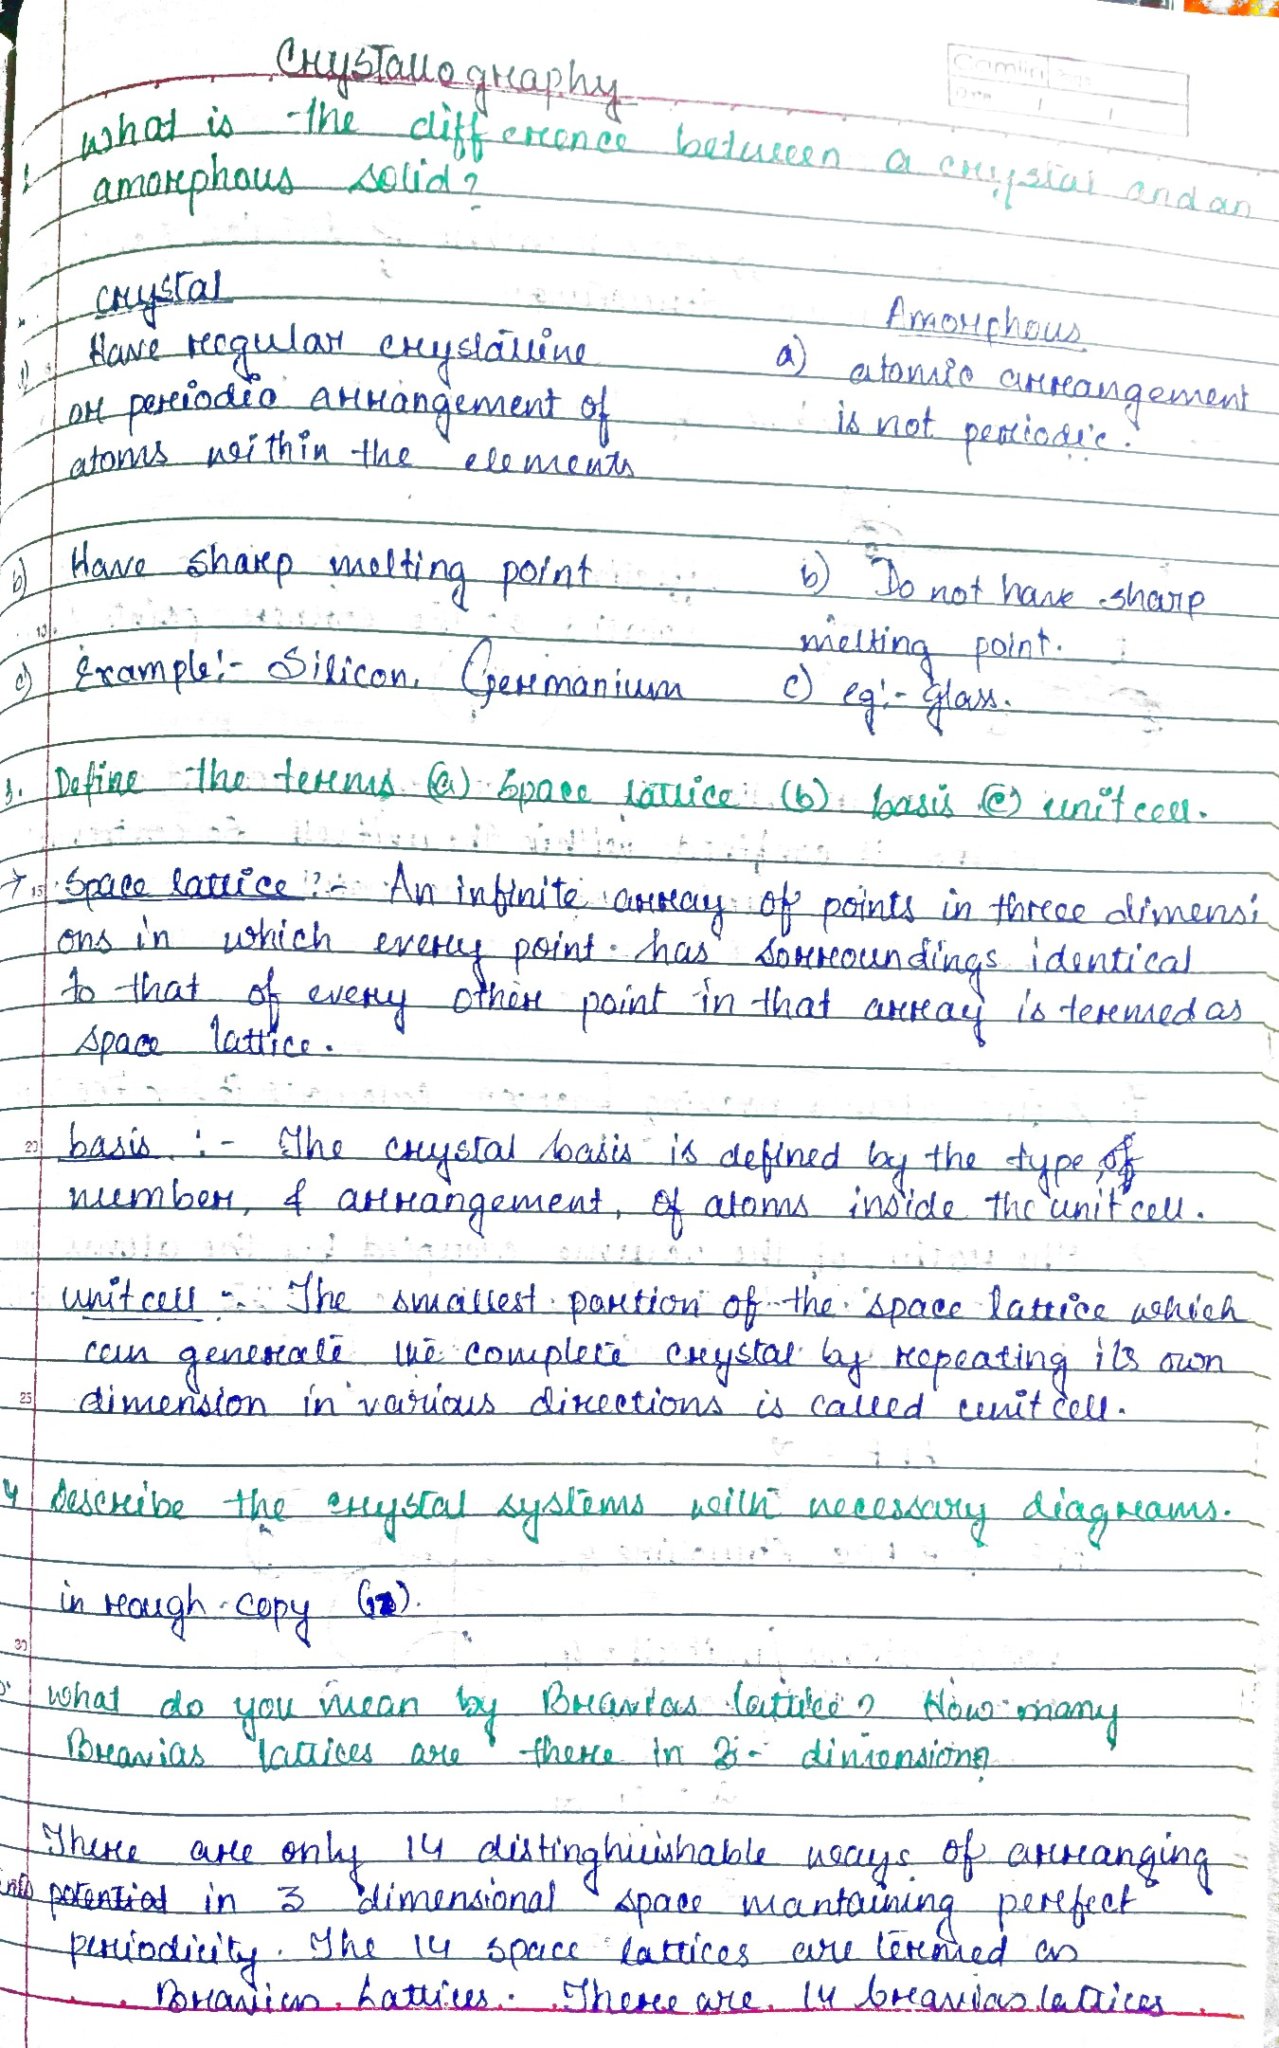 Crystallography
Camlin Page
Date / /
1. What is the difference between a crystal and an
amorphous solid?
crystal
Amorphous
a) Have regular crystalline
or periodic arrangement of
atoms within the elements
a) atomic arrangement
is not periodic.
b) Have sharp melting point
b) Do not have sharp
melting point.
c) Example:- Silicon, Germanium
c) eg:- Glass.
3. Define the terms (a) Space lattice (b) basis (c) unit cell.
→ Space lattice :- An infinite array of points in three dimensi
ons in which every point has sorroundings identical
to that of every other point in that array is termed as
space lattice.
basis :- The crystal basis is defined by the type, of
number, & arrangement, of atoms inside the unit cell.
unit cell :- The smallest portion of the space lattice which
can generate the complete crystal by repeating its own
dimension in various directions is called unit cell.
4 Describe the crystal systems with necessary diagrams.
in rough copy
What do you mean by Bravias lattice? How many
Bravias lattices are there in 3- dimension?
There are only 14 distinghuishable ways of arranging
potential in 3 dimensional space mantaining perefect
periodicity. The 14 space lattices are termed as
Bravias Lattices. There are 14 bravias lattices